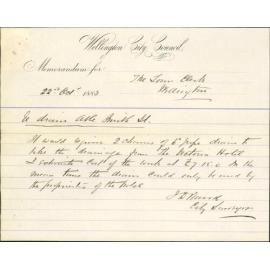 Wellington City Council.
Memorandum for
The Town Clerk
Wellington
22nd Octr 1883
Re drain Able Smith St.
It would require 2 chains of 6" pipe drain to
take the drainage from the Hotel
I estimate cost of the work at £7.15.0 In the
mean time the drain could only be used by
the proprietor of the Hotel
City Surveyor